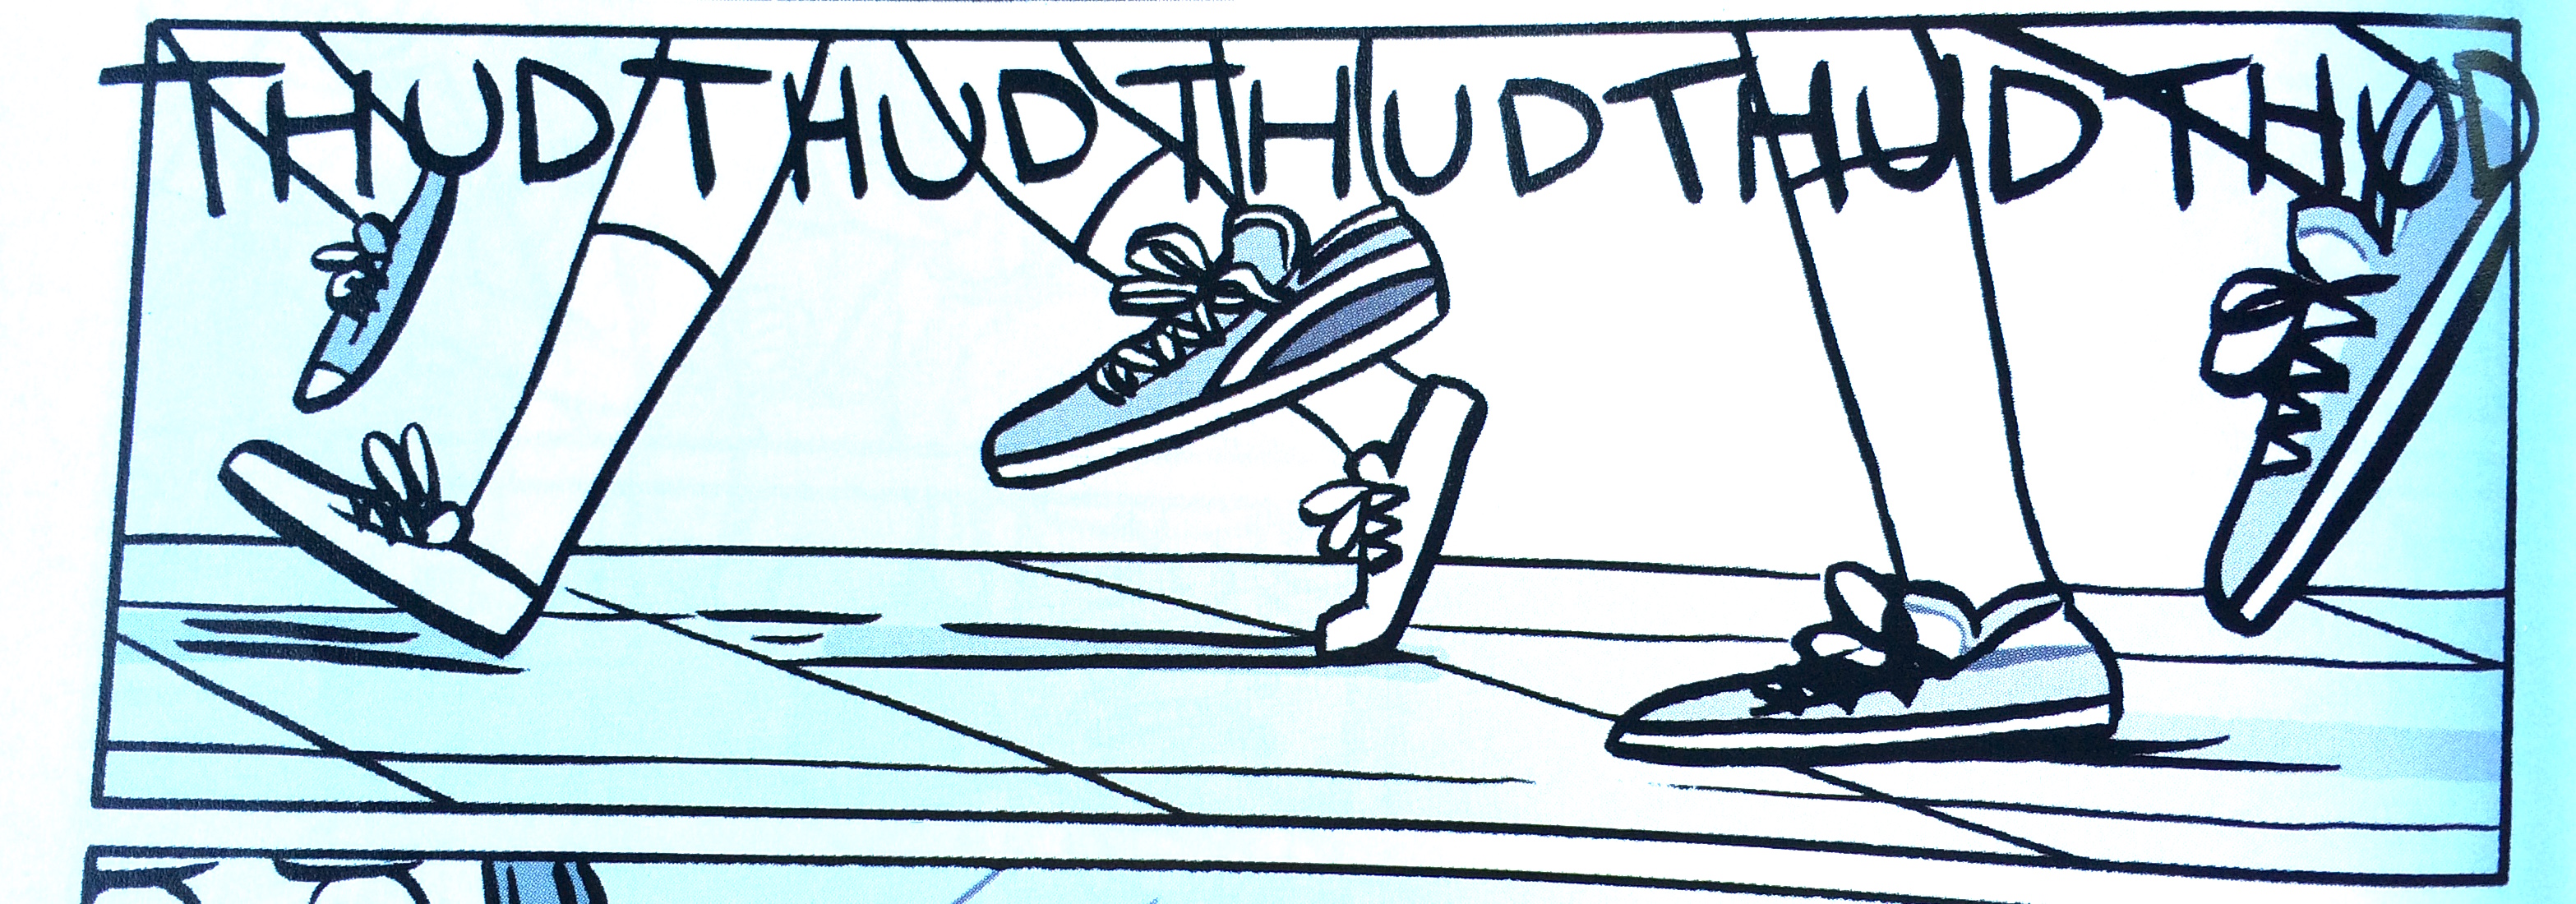 THUD THUD THUD THUD THUD